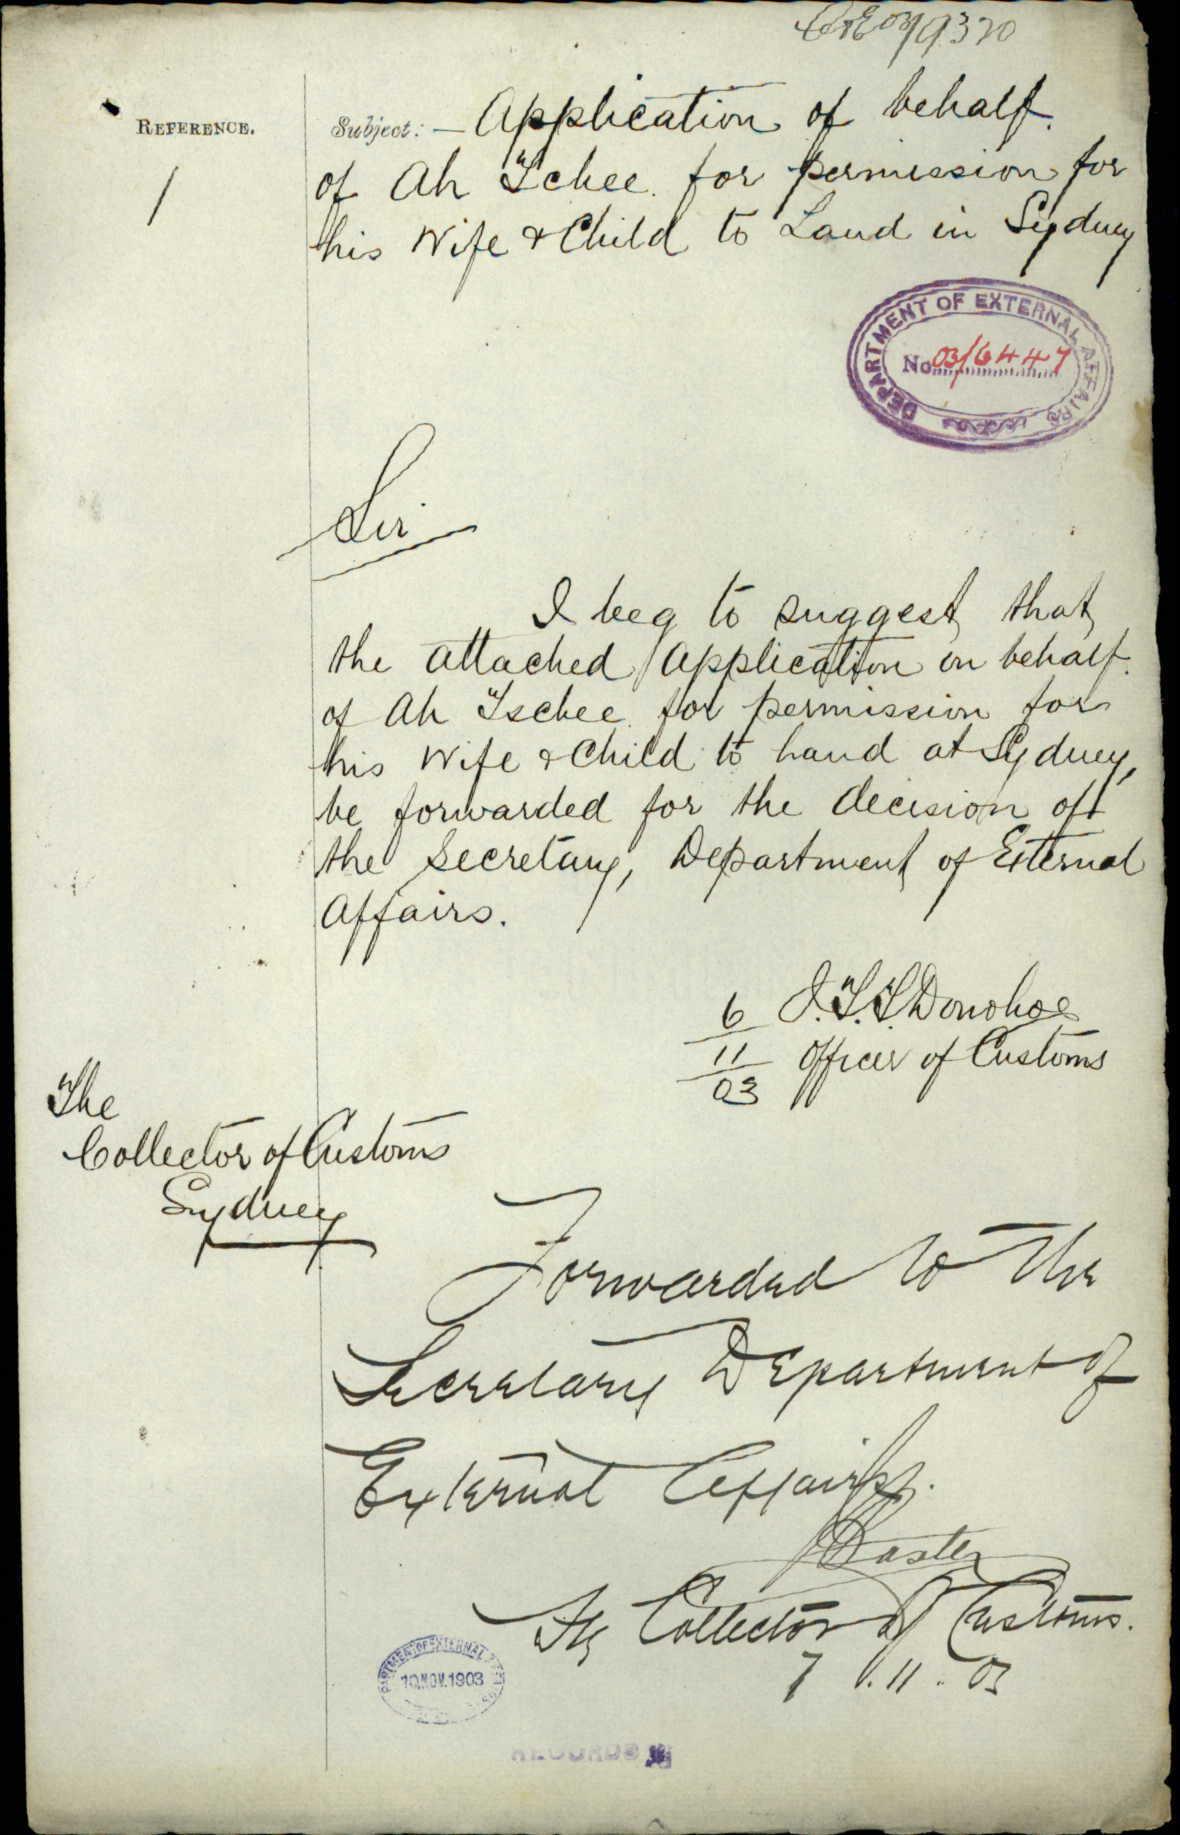 9320
REFERENCE.
1
Subject:— Application of behalf
of Ah Tchee for permission for
his Wife & Child to Land in Sydney
DEPARTMENT OF EXTERNAL AFFAIRS
No 03/6447
Sir
I beg to suggest that
the attached application on behalf
of Ah Tschee for permission for
his Wife & Child to land at Sydney,
be forwarded for the decision of
the Secretary, Department of External
Affairs.
6 J.T.T. Donohoe
11 Officer of Customs
03
The
Collector of Customs
Sydney
Forwarded to the
Secretary Department of
External Affairs.
Baxter
Collector of Customs.
7.11.03
DEPARTMENT OF EXTERNAL AFFAIRS
10 NOV. 1903
RECORDS